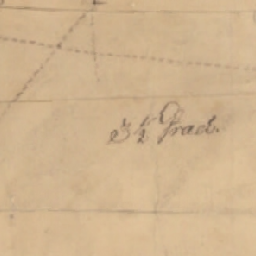 3½ Grad.